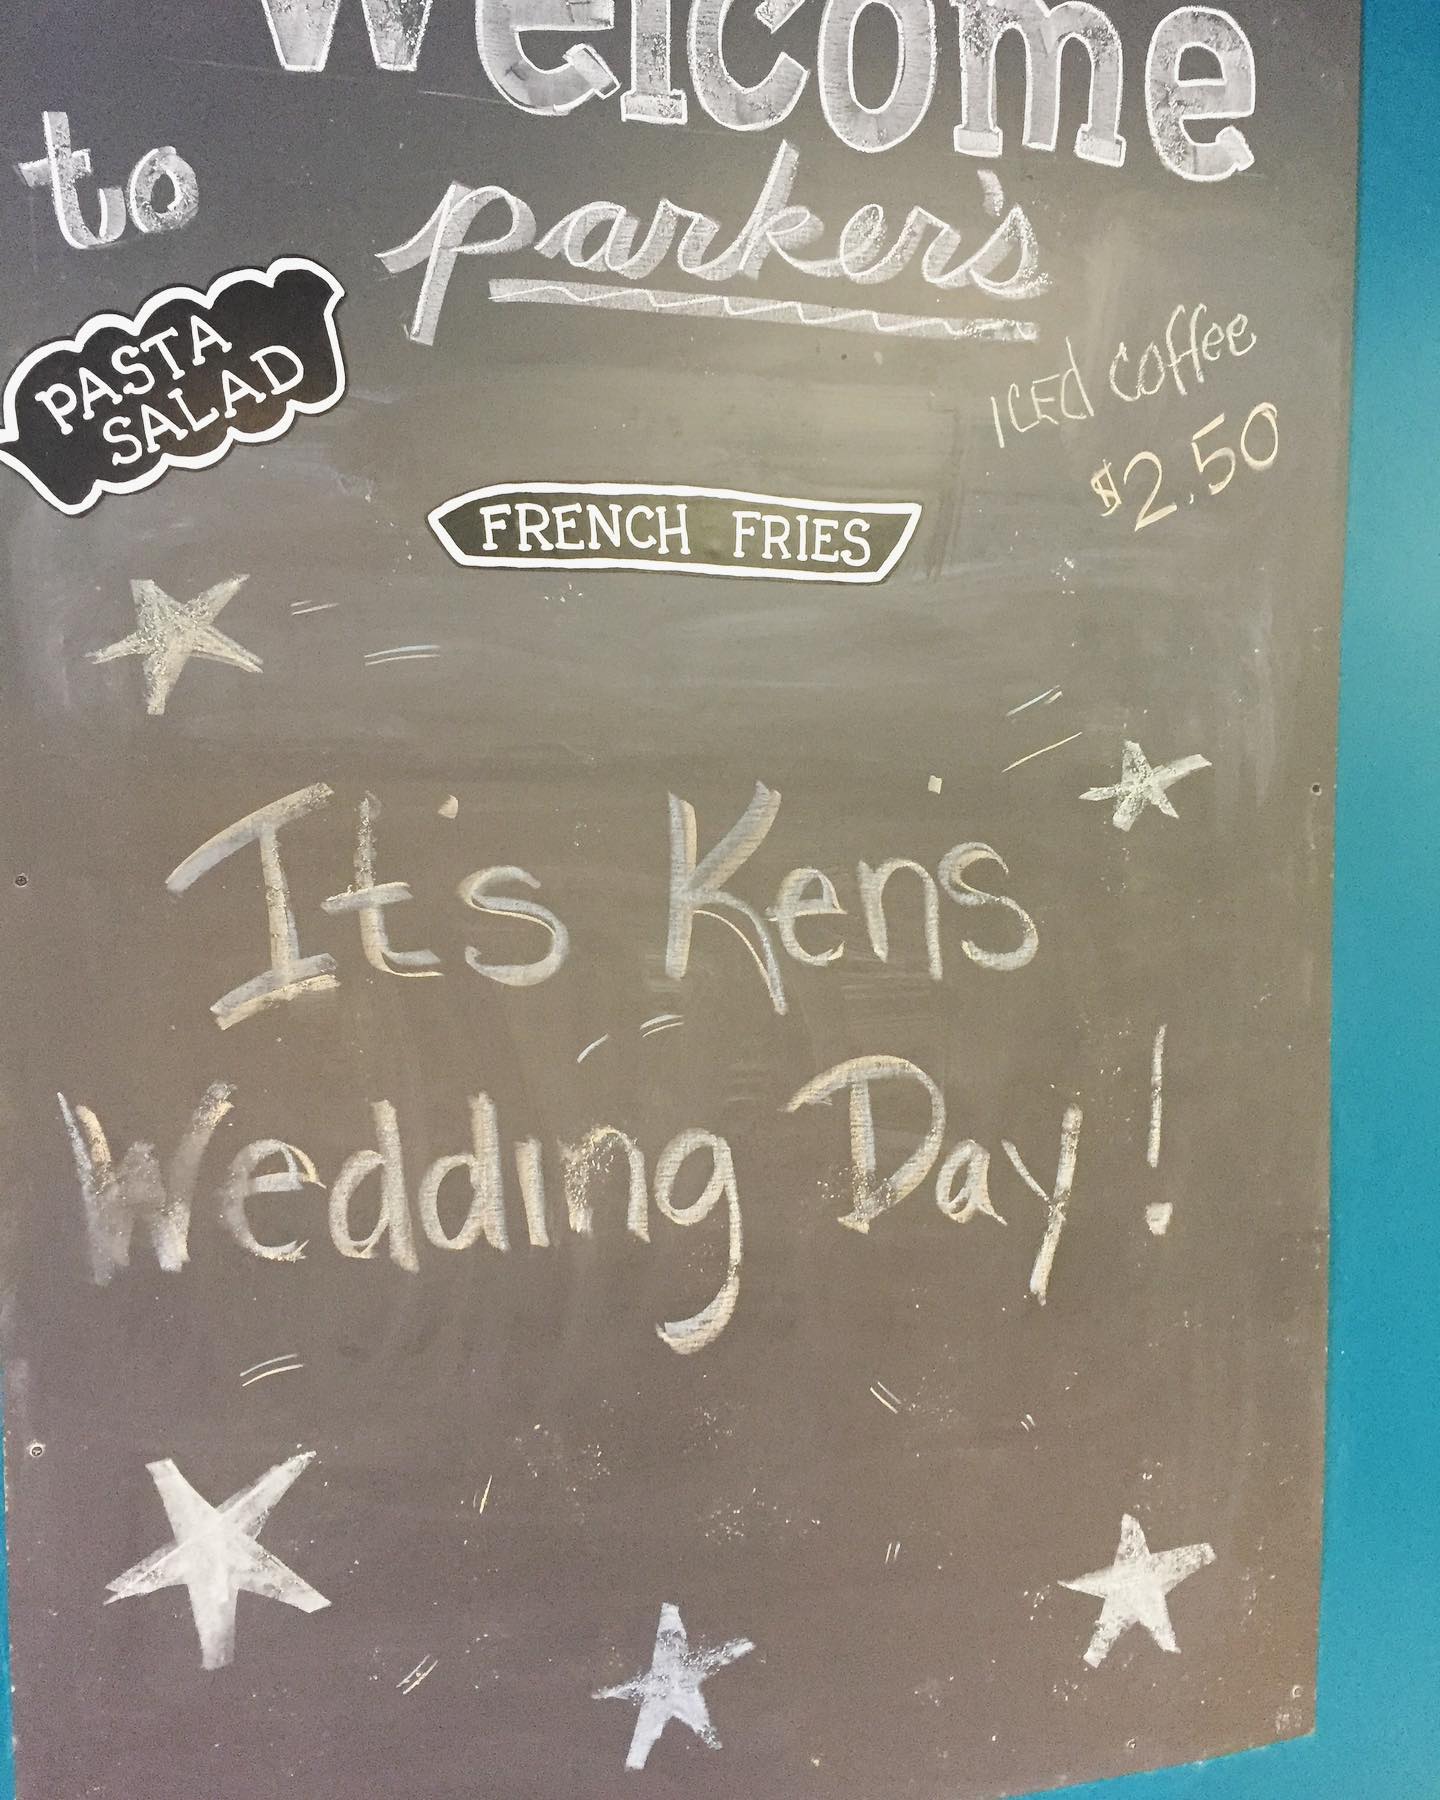 Welcome
to parker's
PASTA
SALAD
ICED Coffee
$2.50
FRENCH FRIES
It's Ken's
Wedding Day!